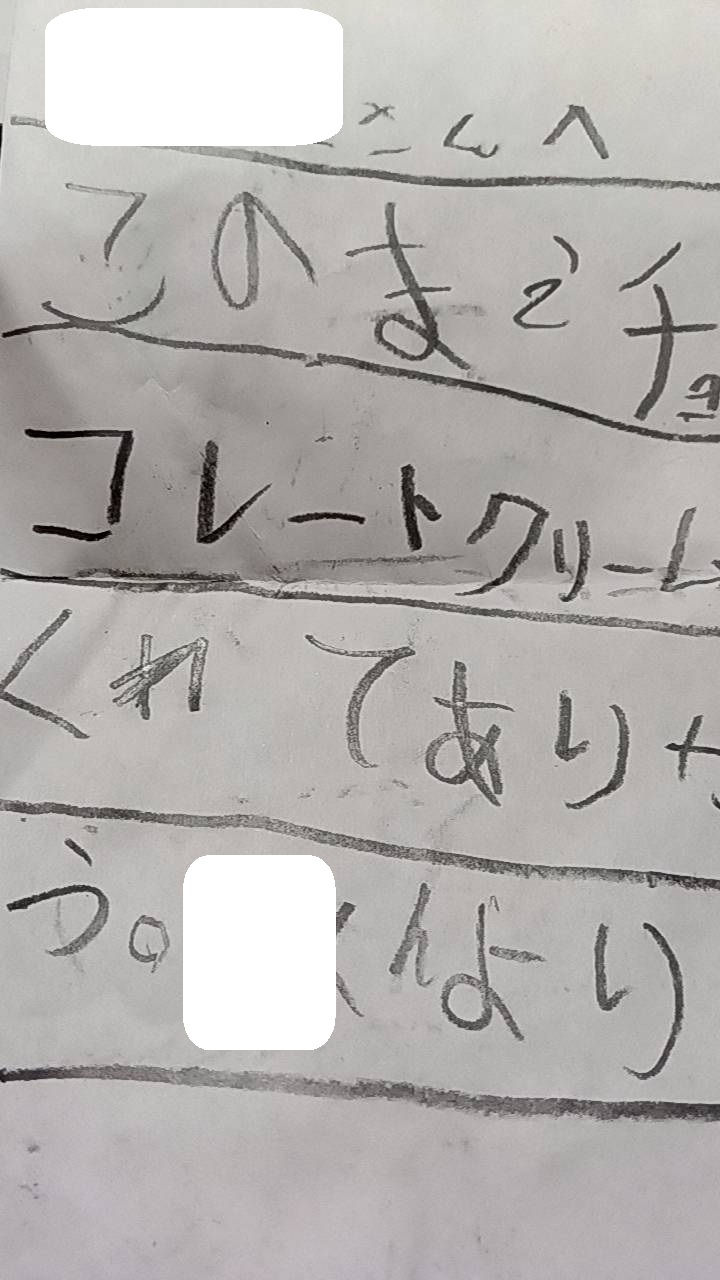 さんへ
このまえチョ
コレートクリーム
くれてありが
う。くんより